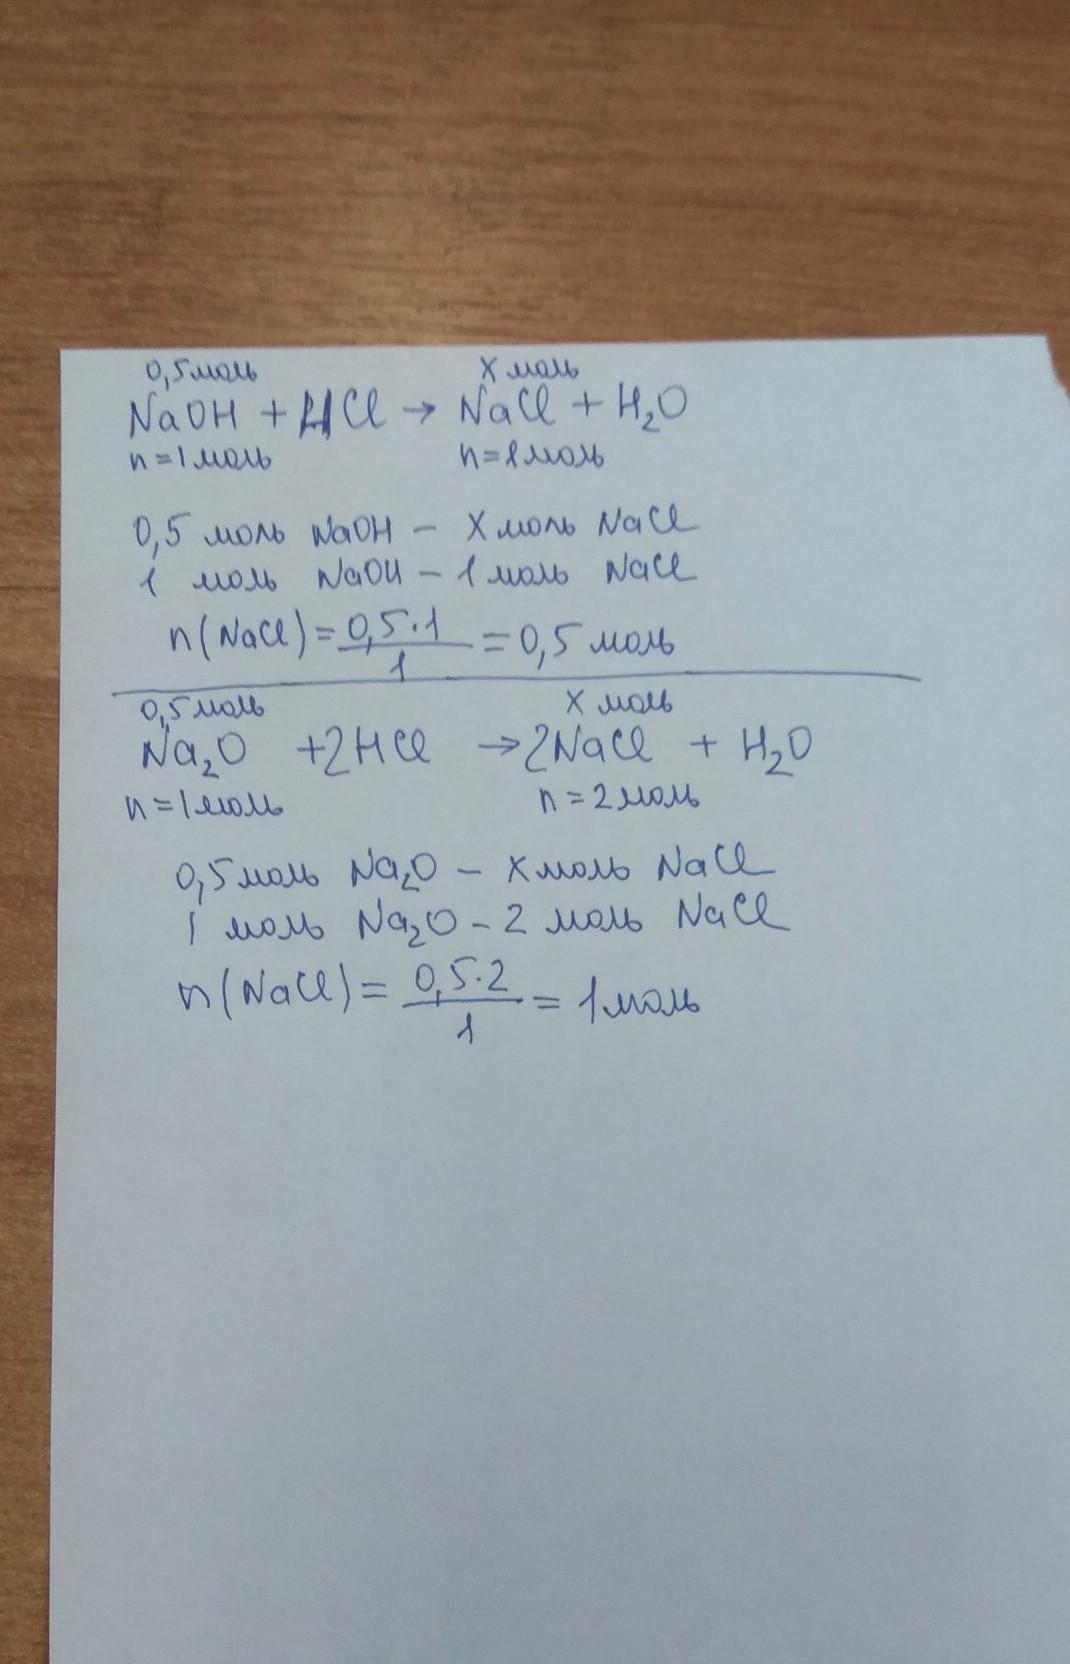 0,5 моль x моль
NaOH + HCl → NaCl + H₂O
n=1моль n=1моль
0,5 моль NaOH – x моль NaCl
1 моль NaOH – 1 моль NaCl
n(NaCl) = 0,5·1/1 = 0,5 моль
0,5 моль x моль
Na₂O +2HCl → 2NaCl + H₂O
n=1моль n=2моль
0,5 моль Na₂O – x моль NaCl
1 моль Na₂O – 2 моль NaCl
n(NaCl) = 0,5·2/1 = 1 моль